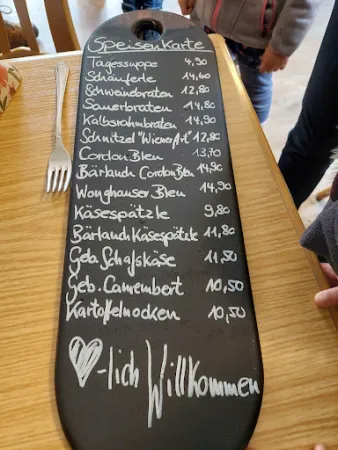 Speisenkarte
Tagessuppe 4,90
Schäuferle 14,60
Schweinebraten 12,80
Sauerbraten 14,80
Kalbsrahmbraten 14,90
Schnitzel "Wiener Art" 12,80
Cordon Bleu 13,70
Bärlauch Cordon Bleu 14,90
Wonghauser Bleu 14,90
Käsespätzle 9,80
Bärlauch Käsespätzle 11,80
Geb. Schafskäse 11,50
Geb. Camembert 10,50
Kartoffelnocken 10,50
-lich Willkommen